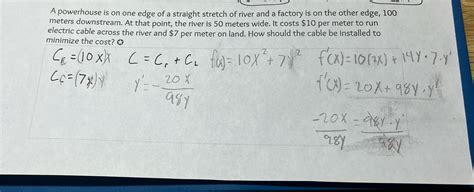 A powerhouse is on one edge of a straight stretch of river and a factory is on the other edge, 100
meters downstream. At that point, the river is 50 meters wide. It costs $10 per meter to run
electric cable across the river and $7 per meter on land. How should the cable be installed to
minimize the cost?
C = C + C f(x) = 10x² + 7y² f'(x) = 10(2x) + 14y · 7 · y'
y' = - 20x / 98y f'(x) = 20x + 98y · y'
-20x / 98y = 98y · y' / 98y